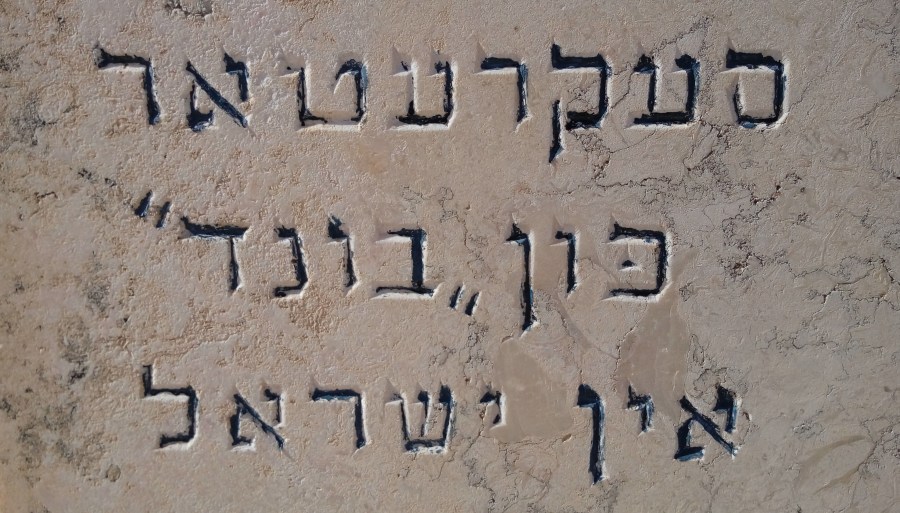 סעקרעטאר
פון „בונד”
אין ישראל